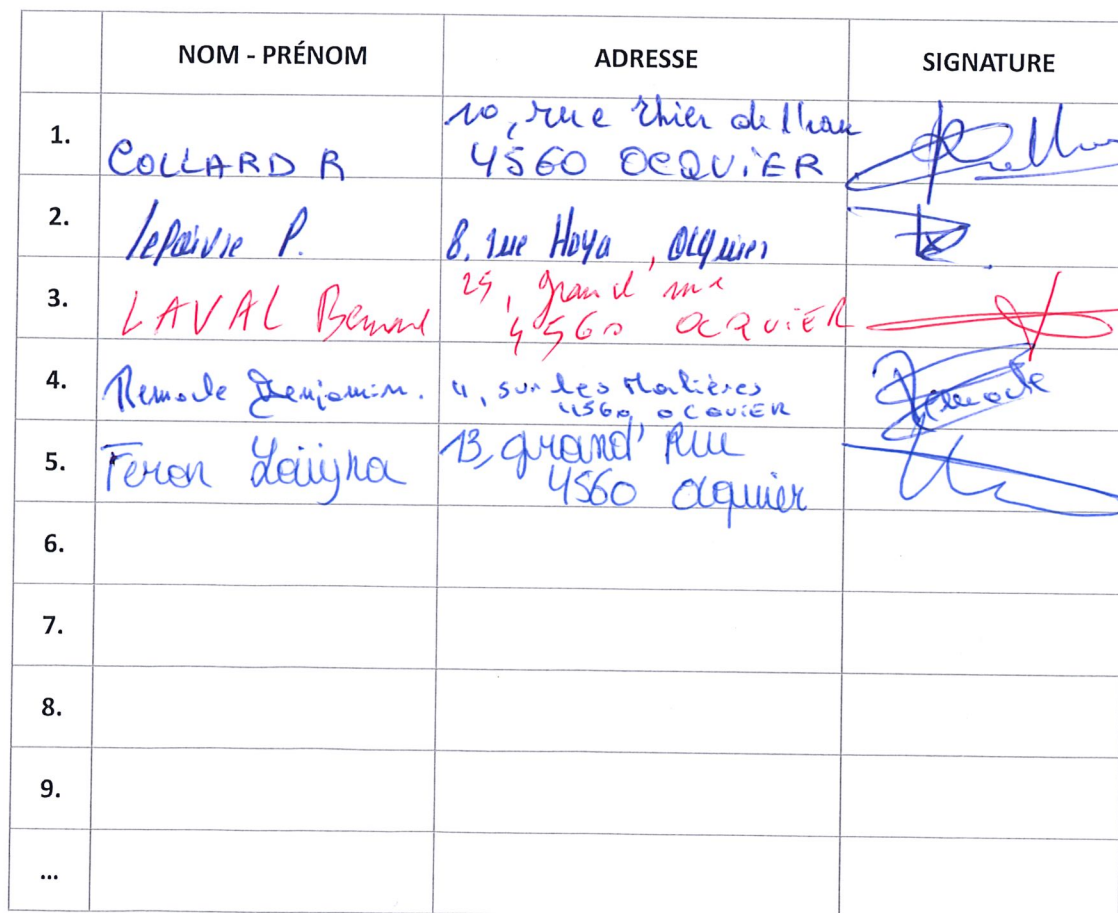 NOM - PRÉNOM ADRESSE SIGNATURE
1. COLLARD R 10, rue Thier
4560 OCQUIER
2. lepaivre P. 8, rue Hoya, Ocquier
3. LAVAL 25, grand rue
4560 OCQUIER
4. Remacle Benjamin. 4, sur les
4560 OCQUIER
5. Feron 13, grand' Rue
4560 Ocquier
6.
7.
8.
9.
...